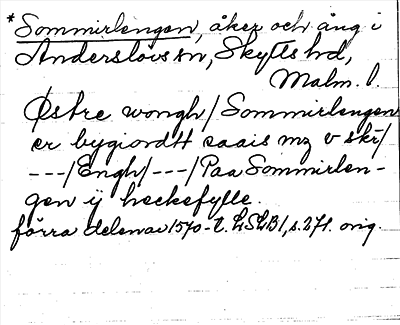 *Sommirlengen, åker och äng i
Anderslövs sn, Skytts hd,
Malm. l.
Østre wongh/Sommirlengen
er bygiordtt saais mz v skr/
---/Engh/---/Paa Sommirlen-
gen ij heckefylle.
förra delen av 1570-t. LSLB1, s. 271. orig.